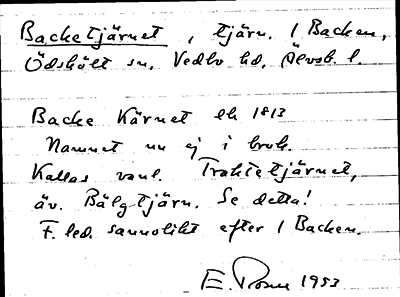 Backetjärnet, tjärn. 1 Backen,
Ödskölt sn. Vedbo hd. Älvsb. l.
Backe Kärnet ek 1813
Namnet nu ej i bruk.
Kallas vanl. Traktetjärnet,
äv. Bälgtjärn. Se detta!
F. led. sannolikt efter 1 Backen.
E. 1953